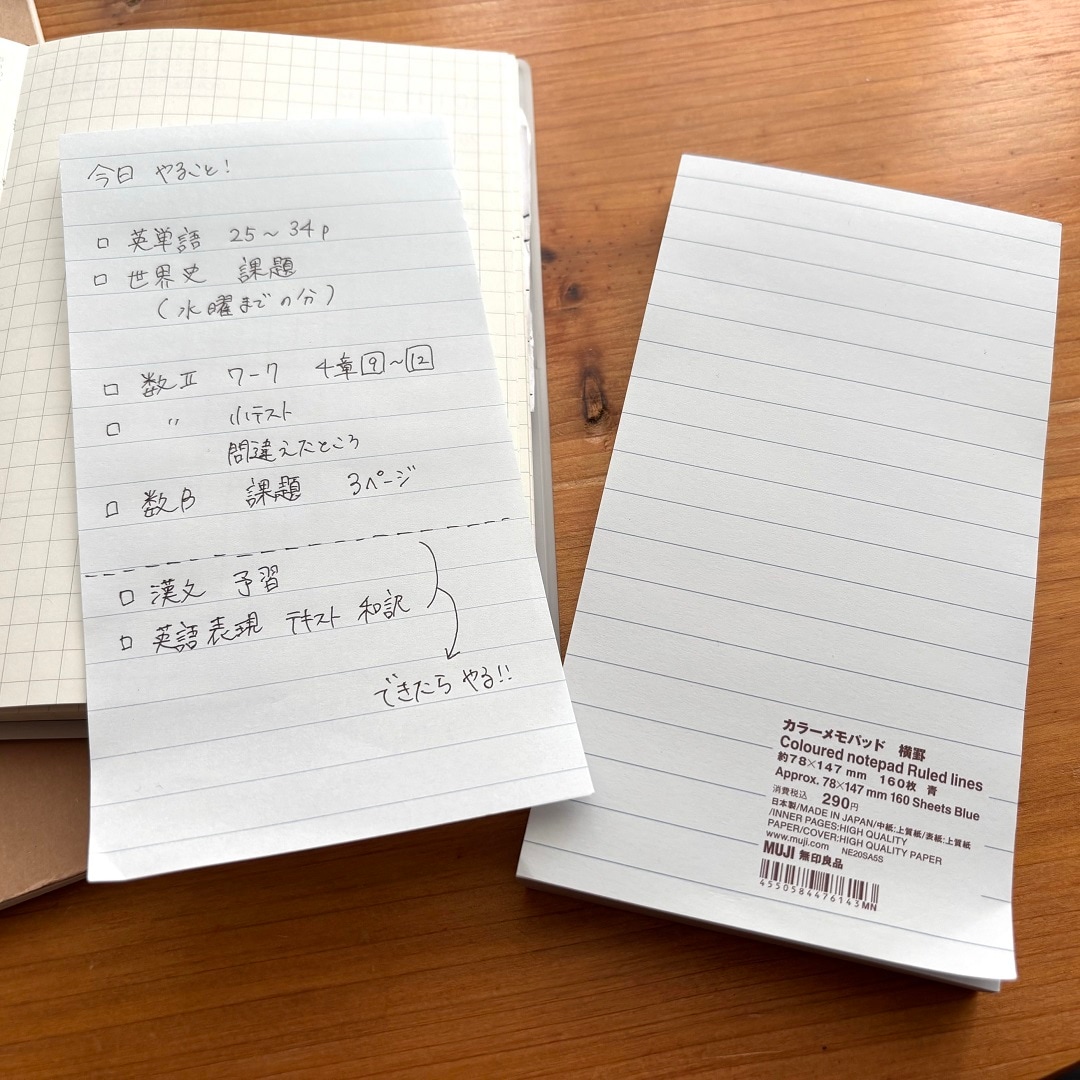 今日 やること!
□ 英単語 25～34p
□ 世界史 課題
(水曜までの分)
□ 数Ⅱ ワーク 4章 9～12
□ 〃 小テスト
間違えたところ
□ 数B 課題 3ページ
□ 漢文 予習
□ 英語表現 テキスト 和訳
できたら やる!!
カラーメモパッド 横罫
Coloured notepad Ruled lines
約78×147 mm 160枚 青
Approx. 78×147 mm 160 Sheets Blue
消費税込 290円
日本製/MADE IN JAPAN/中紙:上質紙/表紙:上質紙
/INNER PAGES:HIGH QUALITY
PAPER/COVER:HIGH QUALITY PAPER
www.muji.com NE20SA5S
MUJI 無印良品
4550584476143MN